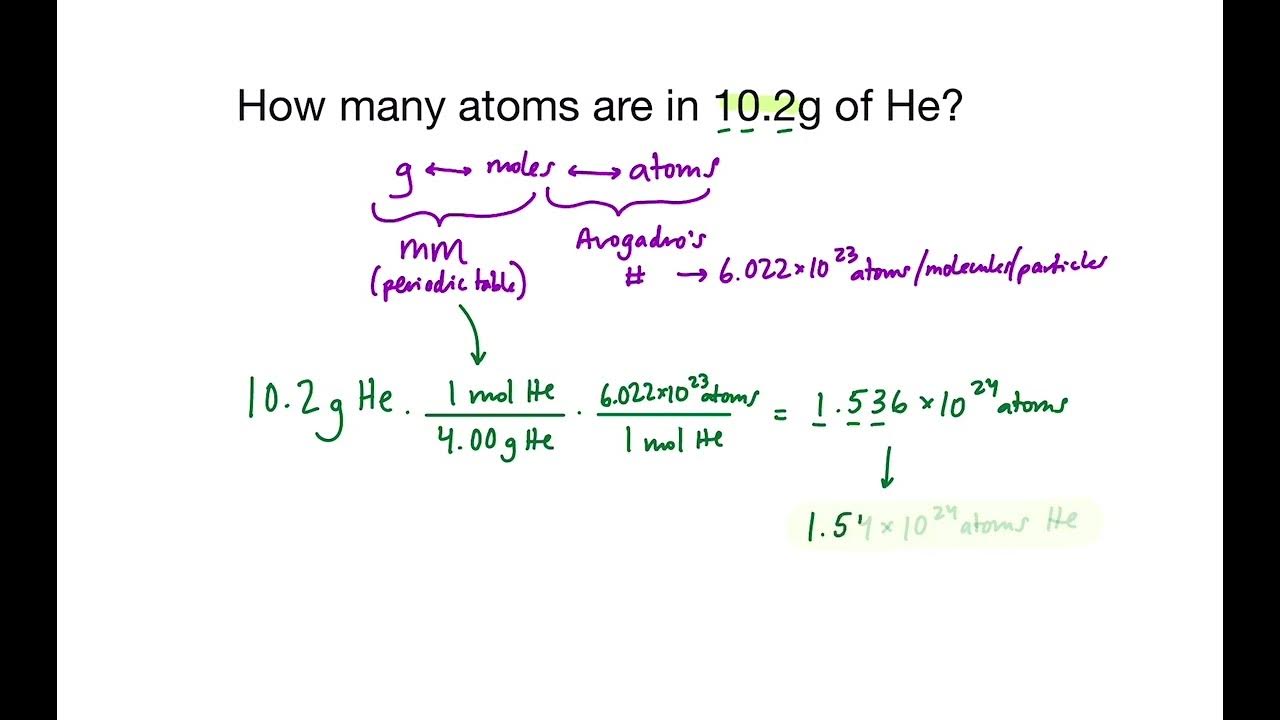 How many atoms are in 10.2g of He?
g ↔ moles ↔ atoms
mm
(periodic table)
Avogadro's
# → 6.022×10²³ atoms/molecules/particles
10.2 g He · 1 mol He / 4.00 g He · 6.022×10²³ atoms / 1 mol He = 1.536 ×10²⁴ atoms
1.54 ×10²⁴ atoms He